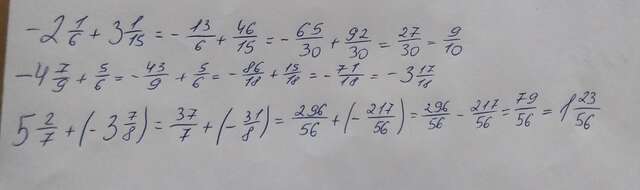 -2 1/6 + 3 1/15 = - 13/6 + 46/15 = - 65/30 + 92/30 = 27/30 = 9/10
-4 7/9 + 5/6 = - 43/9 + 5/6 = - 86/18 + 15/18 = - 71/18 = -3 17/18
5 2/7 + (-3 7/8) = 37/7 + (- 31/8) = 296/56 + (- 217/56) = 296/56 - 217/56 = 79/56 = 1 23/56